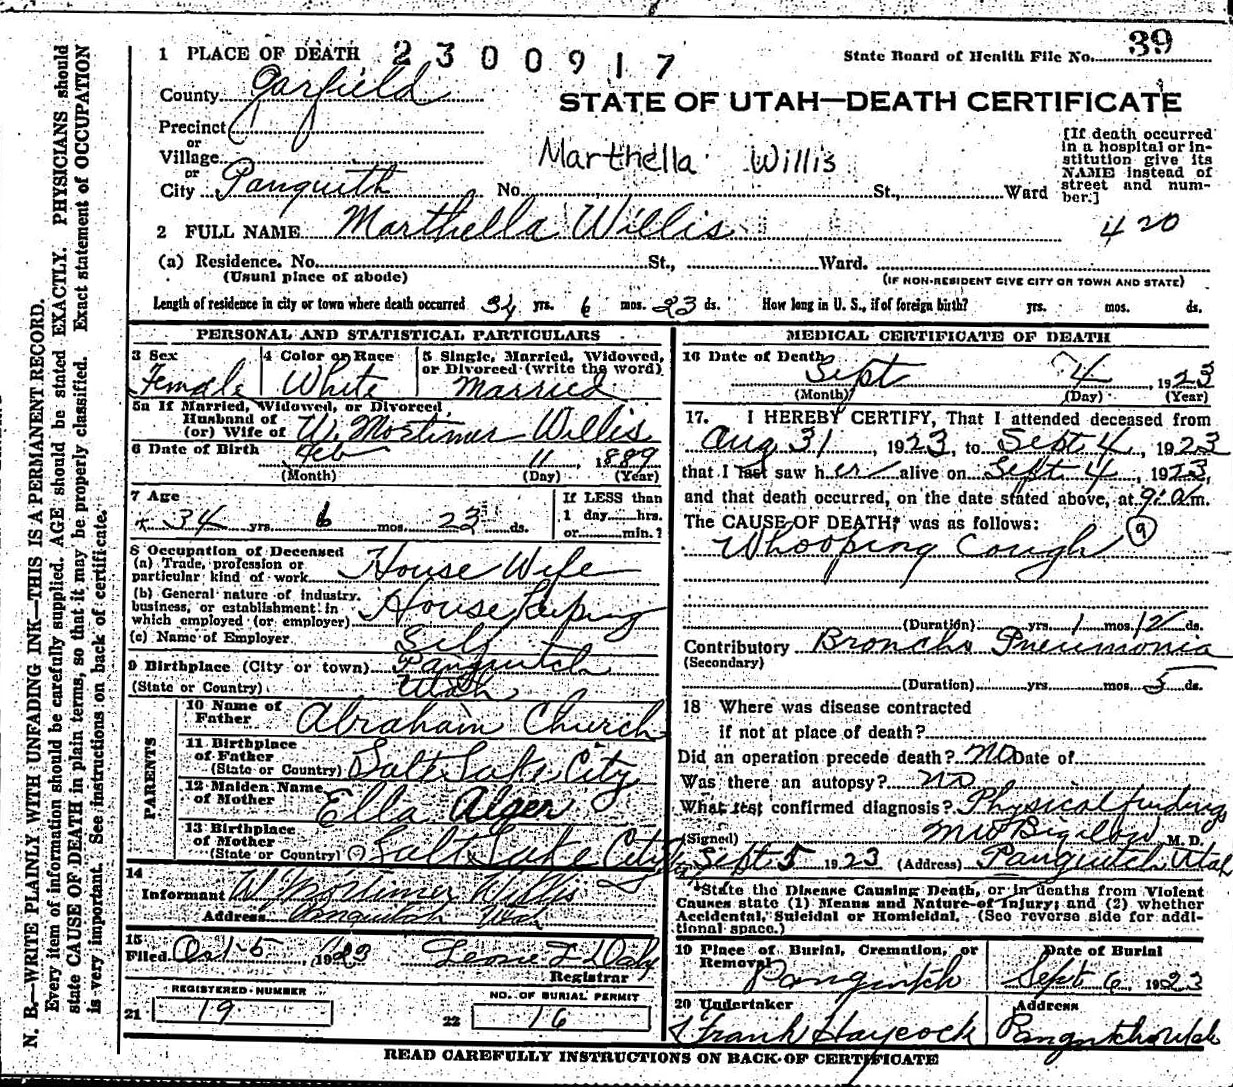 N. B.—WRITE PLAINLY WITH UNFADING INK—THIS IS A PERMANENT RECORD.
Every item of information should be carefully supplied. AGE should be stated EXACTLY. PHYSICIANS should
state CAUSE OF DEATH in plain terms, so that it may be properly classified. Exact statement of OCCUPATION
is very important. See instructions on back of certificate.
1 PLACE OF DEATH 2300917
State Board of Health File No. 39
County Garfield
STATE OF UTAH—DEATH CERTIFICATE
Precinct
or
Village
or
City Panguitch No. St., Ward
Marthella Willis
[If death occurred
in a hospital or in-
stitution give its
NAME instead of
street and num-
ber.]
2 FULL NAME Marthella Willis
420
(a) Residence. No. St., Ward.
(Usual place of abode)
(IF NON-RESIDENT GIVE CITY OR TOWN AND STATE)
Length of residence in city or town where death occurred 34 yrs. 6 mos. 23 ds. How long in U. S., if of foreign birth? yrs. mos. ds.
PERSONAL AND STATISTICAL PARTICULARS
3 Sex
Female
4 Color or Race
White
5 Single, Married, Widowed,
or Divorced (write the word)
Married
5a If Married, Widowed, or Divorced
Husband of
(or) Wife of W. Mortimer Willis
6 Date of Birth
Feb 11, 1889
(Month) (Day) (Year)
7 Age
34 yrs. 6 mos. 23 ds.
If LESS than
1 day hrs.
or min.?
8 Occupation of Deceased
(a) Trade, profession or
particular kind of work House Wife
(b) General nature of industry,
business, or establishment in
which employed (or employer) House Keeping
(c) Name of Employer Self
9 Birthplace (City or town) Panguitch
(State or Country) Utah
PARENTS
10 Name of
Father Abraham Church
11 Birthplace
of Father
(State or Country) Salt Lake City
12 Maiden Name
of Mother Ella Alger
13 Birthplace
of Mother
(State or Country) Salt Lake City
14
Informant W. Mortimer Willis
Address Panguitch Utah
15
Filed Oct-5, 1923
Registrar
REGISTERED NUMBER
21 19
NO. OF BURIAL PERMIT
22 16
MEDICAL CERTIFICATE OF DEATH
16 Date of Death
Sept 4, 1923
(Month) (Day) (Year)
17. I HEREBY CERTIFY, That I attended deceased from
Aug 31, 1923, to Sept 4, 1923
that I last saw her alive on Sept 4, 1923,
and that death occurred, on the date stated above, at 9: a m.
The CAUSE OF DEATH* was as follows:
Whooping Cough 9
(Duration) yrs. 1 mos. 12 ds.
Contributory Broncho Pneumonia
(Secondary)
(Duration) yrs. mos. 5 ds.
18 Where was disease contracted
if not at place of death?
Did an operation precede death? no Date of
Was there an autopsy? no
What test confirmed diagnosis? Physical findings
(Signed) M W Bigelow M. D.
Sept 5 1923 (Address) Panguitch, Utah
*State the Disease Causing Death, or in deaths from Violent
Causes state (1) Means and Nature of Injury; and (2) whether
Accidental, Suicidal or Homicidal. (See reverse side for addi-
tional space.)
19 Place of Burial, Cremation, or
Removal Panguitch
Date of Burial
Sept 6, 1923
20 Undertaker
Frank Haycock
Address
Panguitch Utah
READ CAREFULLY INSTRUCTIONS ON BACK OF CERTIFICATE